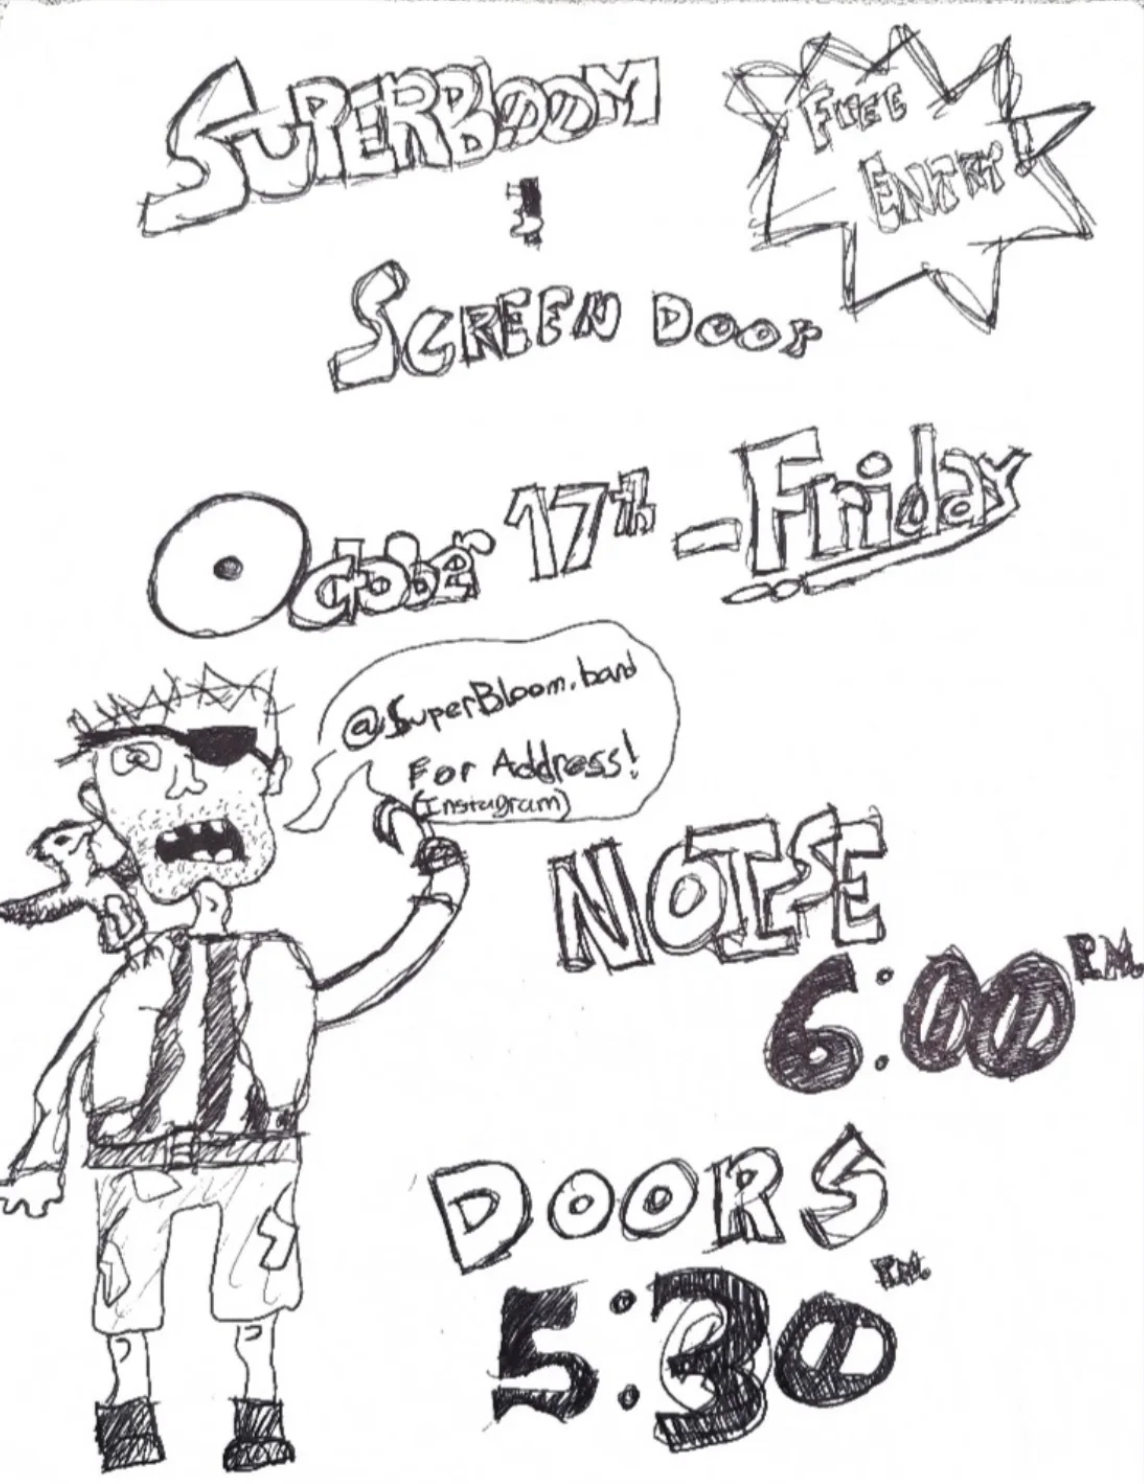 SUPERBLOOM
&
SCREEN DOOR
FREE
ENTRY!
October 17th - Friday
@SuperBloom.band
For Address!
(Instagram)
NOISE
6:00 P.M.
DOORS
5:30 P.M.